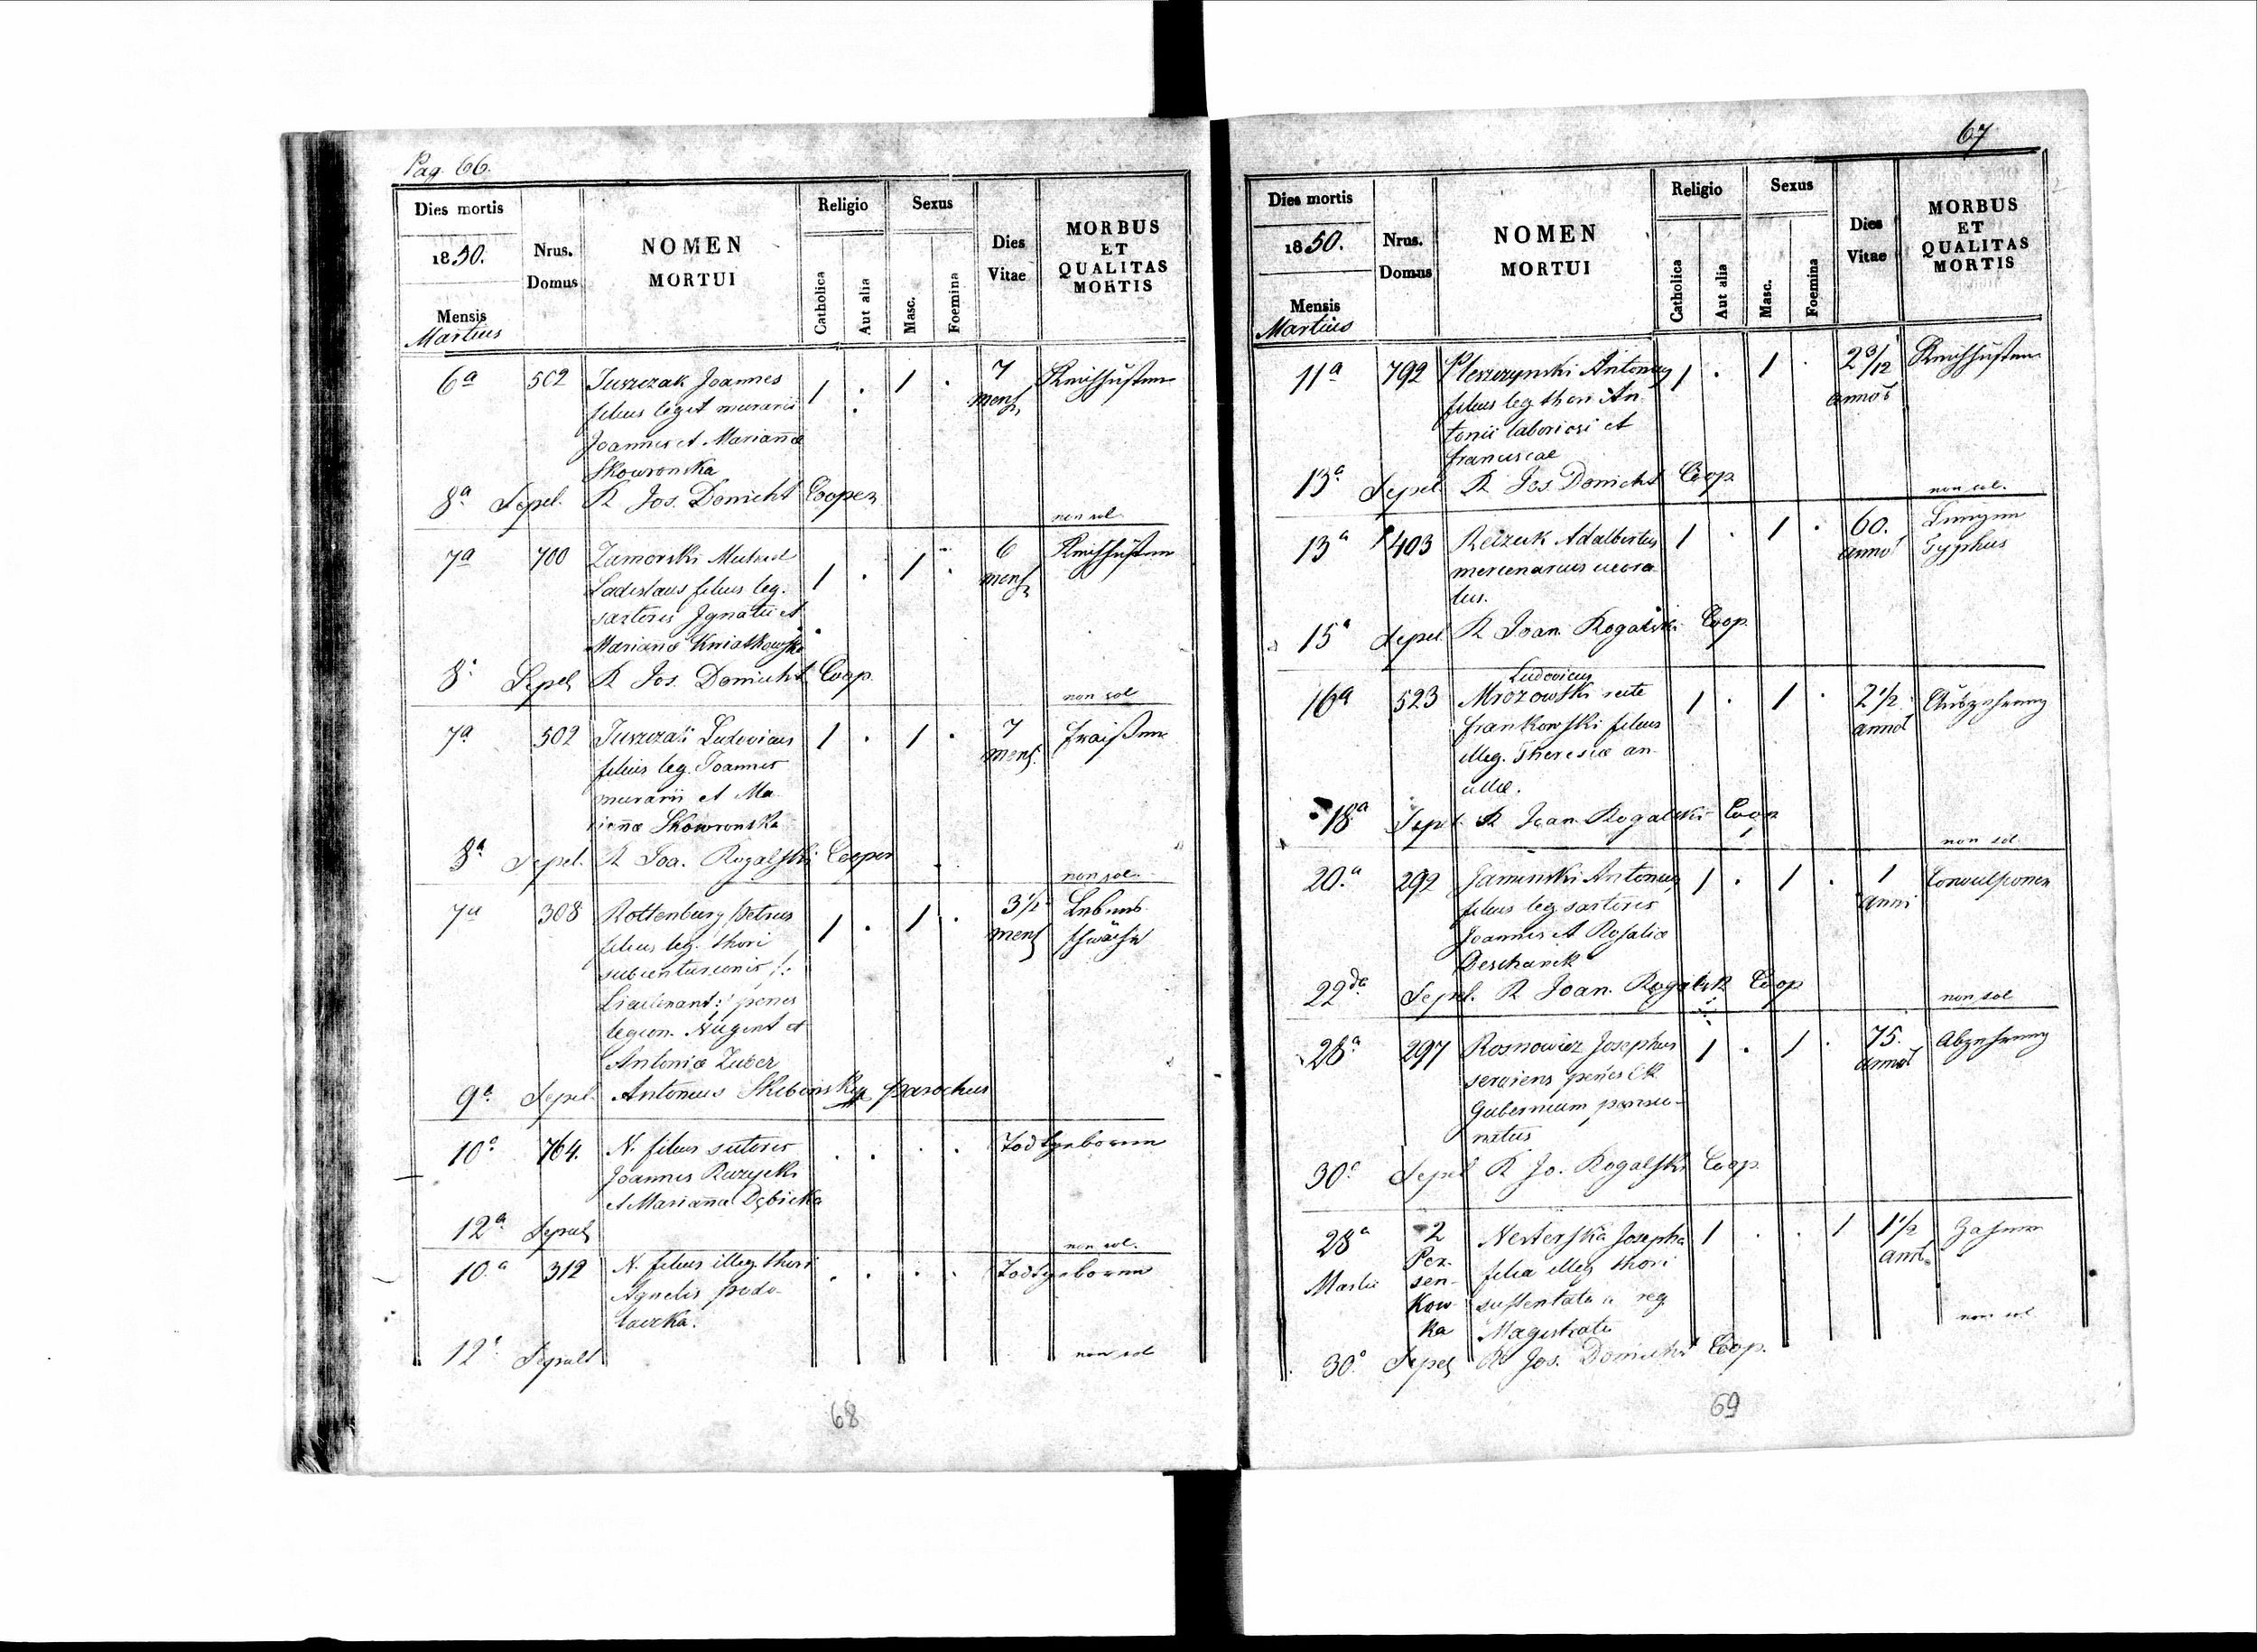 Pag. 66.
Dies mortis
1850.
Mensis
Martius
Nrus.
Domus
NOMEN
MORTUI
Religio
Catholica
Aut alia
Sexus
Masc.
Foemina
Dies
Vitae
MORBUS
ET
QUALITAS
MORTIS
6a 502 Juszczak Joannes 1 . 1 . 7 Keichhusten
filius legit murarii mens
Joannis et Mariannæ
Skowronska
8a Sepel. R Jos. Donicht Cooper
non sol
7a 700 Zamorski Michael 1 . 1 . 6 Keichhusten
Ladislaus filius leg. mens
sartoris Ignatii et
Mariannæ Kwiatkowska
8a Sepel R Jos. Donicht Coop.
non sol
7a 502 Juszczak Ludovicus 1 . 1 . 7 Fraißen
filius leg. Joannis mens.
murarii et Ma
riannæ Skowronska
8a Sepel. R Joa. Rogalski Cooper
non sol.
7a 308 Rottenburg Petrus 1 . 1 . 3 1/2 Lebens
filius leg. thori mens schwäche
subcenturionis /:
Lieutenant :/ penes
legion. Nugent et
Antoniæ Zuber
9a Sepel. Antonius parochus
10a 764. N. filius sutoris . . . . Todtgeboren
Joannis Ruzycki
et Marianna Dębicka
12a Sepult
non sol.
10a 312 N. filius illeg thori . . . . Todtgeboren
Agnetis podo-
laczka.
12a Sepult
non sol
68
67
Dies mortis
1850.
Mensis
Martius
Nrus.
Domus
NOMEN
MORTUI
Religio
Catholica
Aut alia
Sexus
Masc.
Foemina
Dies
Vitae
MORBUS
ET
QUALITAS
MORTIS
11a 792 Pleszczynski Antonius 1 . 1 . 2 3/12 Keichhusten
filius leg thori An- annor
tonii laboriosi et
Franciscae
13a Sepel. R Jos. Donicht Coop
non sol.
13a 403 Adalbertus 1 . 1 . 60. Lungen
mercenarius uxora- annor Typhus
tus.
15a Sepel. R Joan. Rogalski Coop.
Ludovicus
16a 523 Mrozowski recte 1 . 1 . 2 1/2 Auszehrung
Frankowski filius annor
illeg. Theresiæ an-
cillæ.
18a Sepel. R Joan. Rogalski Coop
non sol
20.a 292 Kaminski Antonius 1 . 1 . 1 Convulsionen
filius leg sartoris anni
Joannis et Rosaliæ
Deschanek
22da Sepel. R Joan. Rogalski Coop
non sol
28a 297 Rosnowicz Josephus 1 . 1 . 75. Abzehrung
serviens penes CR annor
Gubernium pensio-
natus
30a Sepel R Jo. Rogalski Coop.
28a 2 Nesterska Josepha 1 . . 1 1 1/2 Zahnen
Martii Per- filia illeg thori ann.
sen- sustentata a reg
kow- Magistratu
ka
non sol
30a Sepel R Jos. Donicht Coop.
69